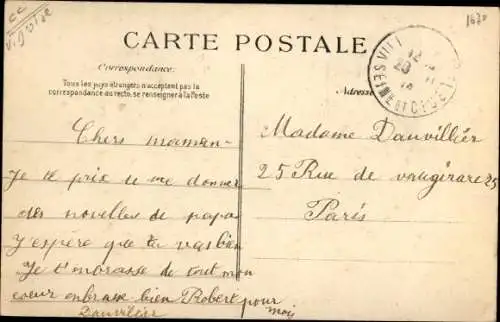 CC
Vigoise
1630
CARTE POSTALE
Correspondance.
Tous les pays étrangers n'acceptent pas la
correspondance au recto, se renseigner à la Poste
Adresse
SEINE ET OISE
Chers maman-
Je te prix de me donner
des novelles de papa
J'espère que tu vas bien
Je t'mbrasse de tout mon
coeur enbrasse bien Robert pour moi
Dauvillier
Madame Dauvillier
25 Rue de vaugirare 25
Paris